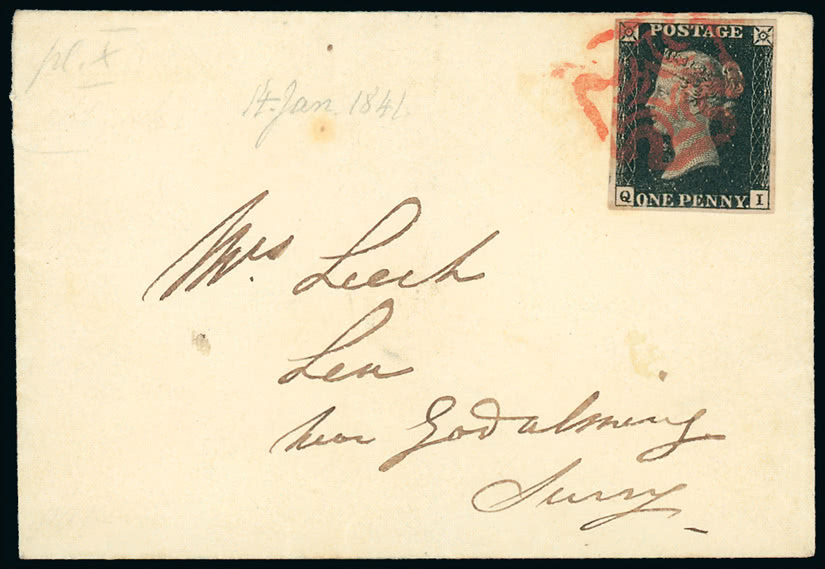 pl. X
14 Jan 1841
POSTAGE
Q ONE PENNY. I
Mrs Leech
Lea
near Godalming
Surry